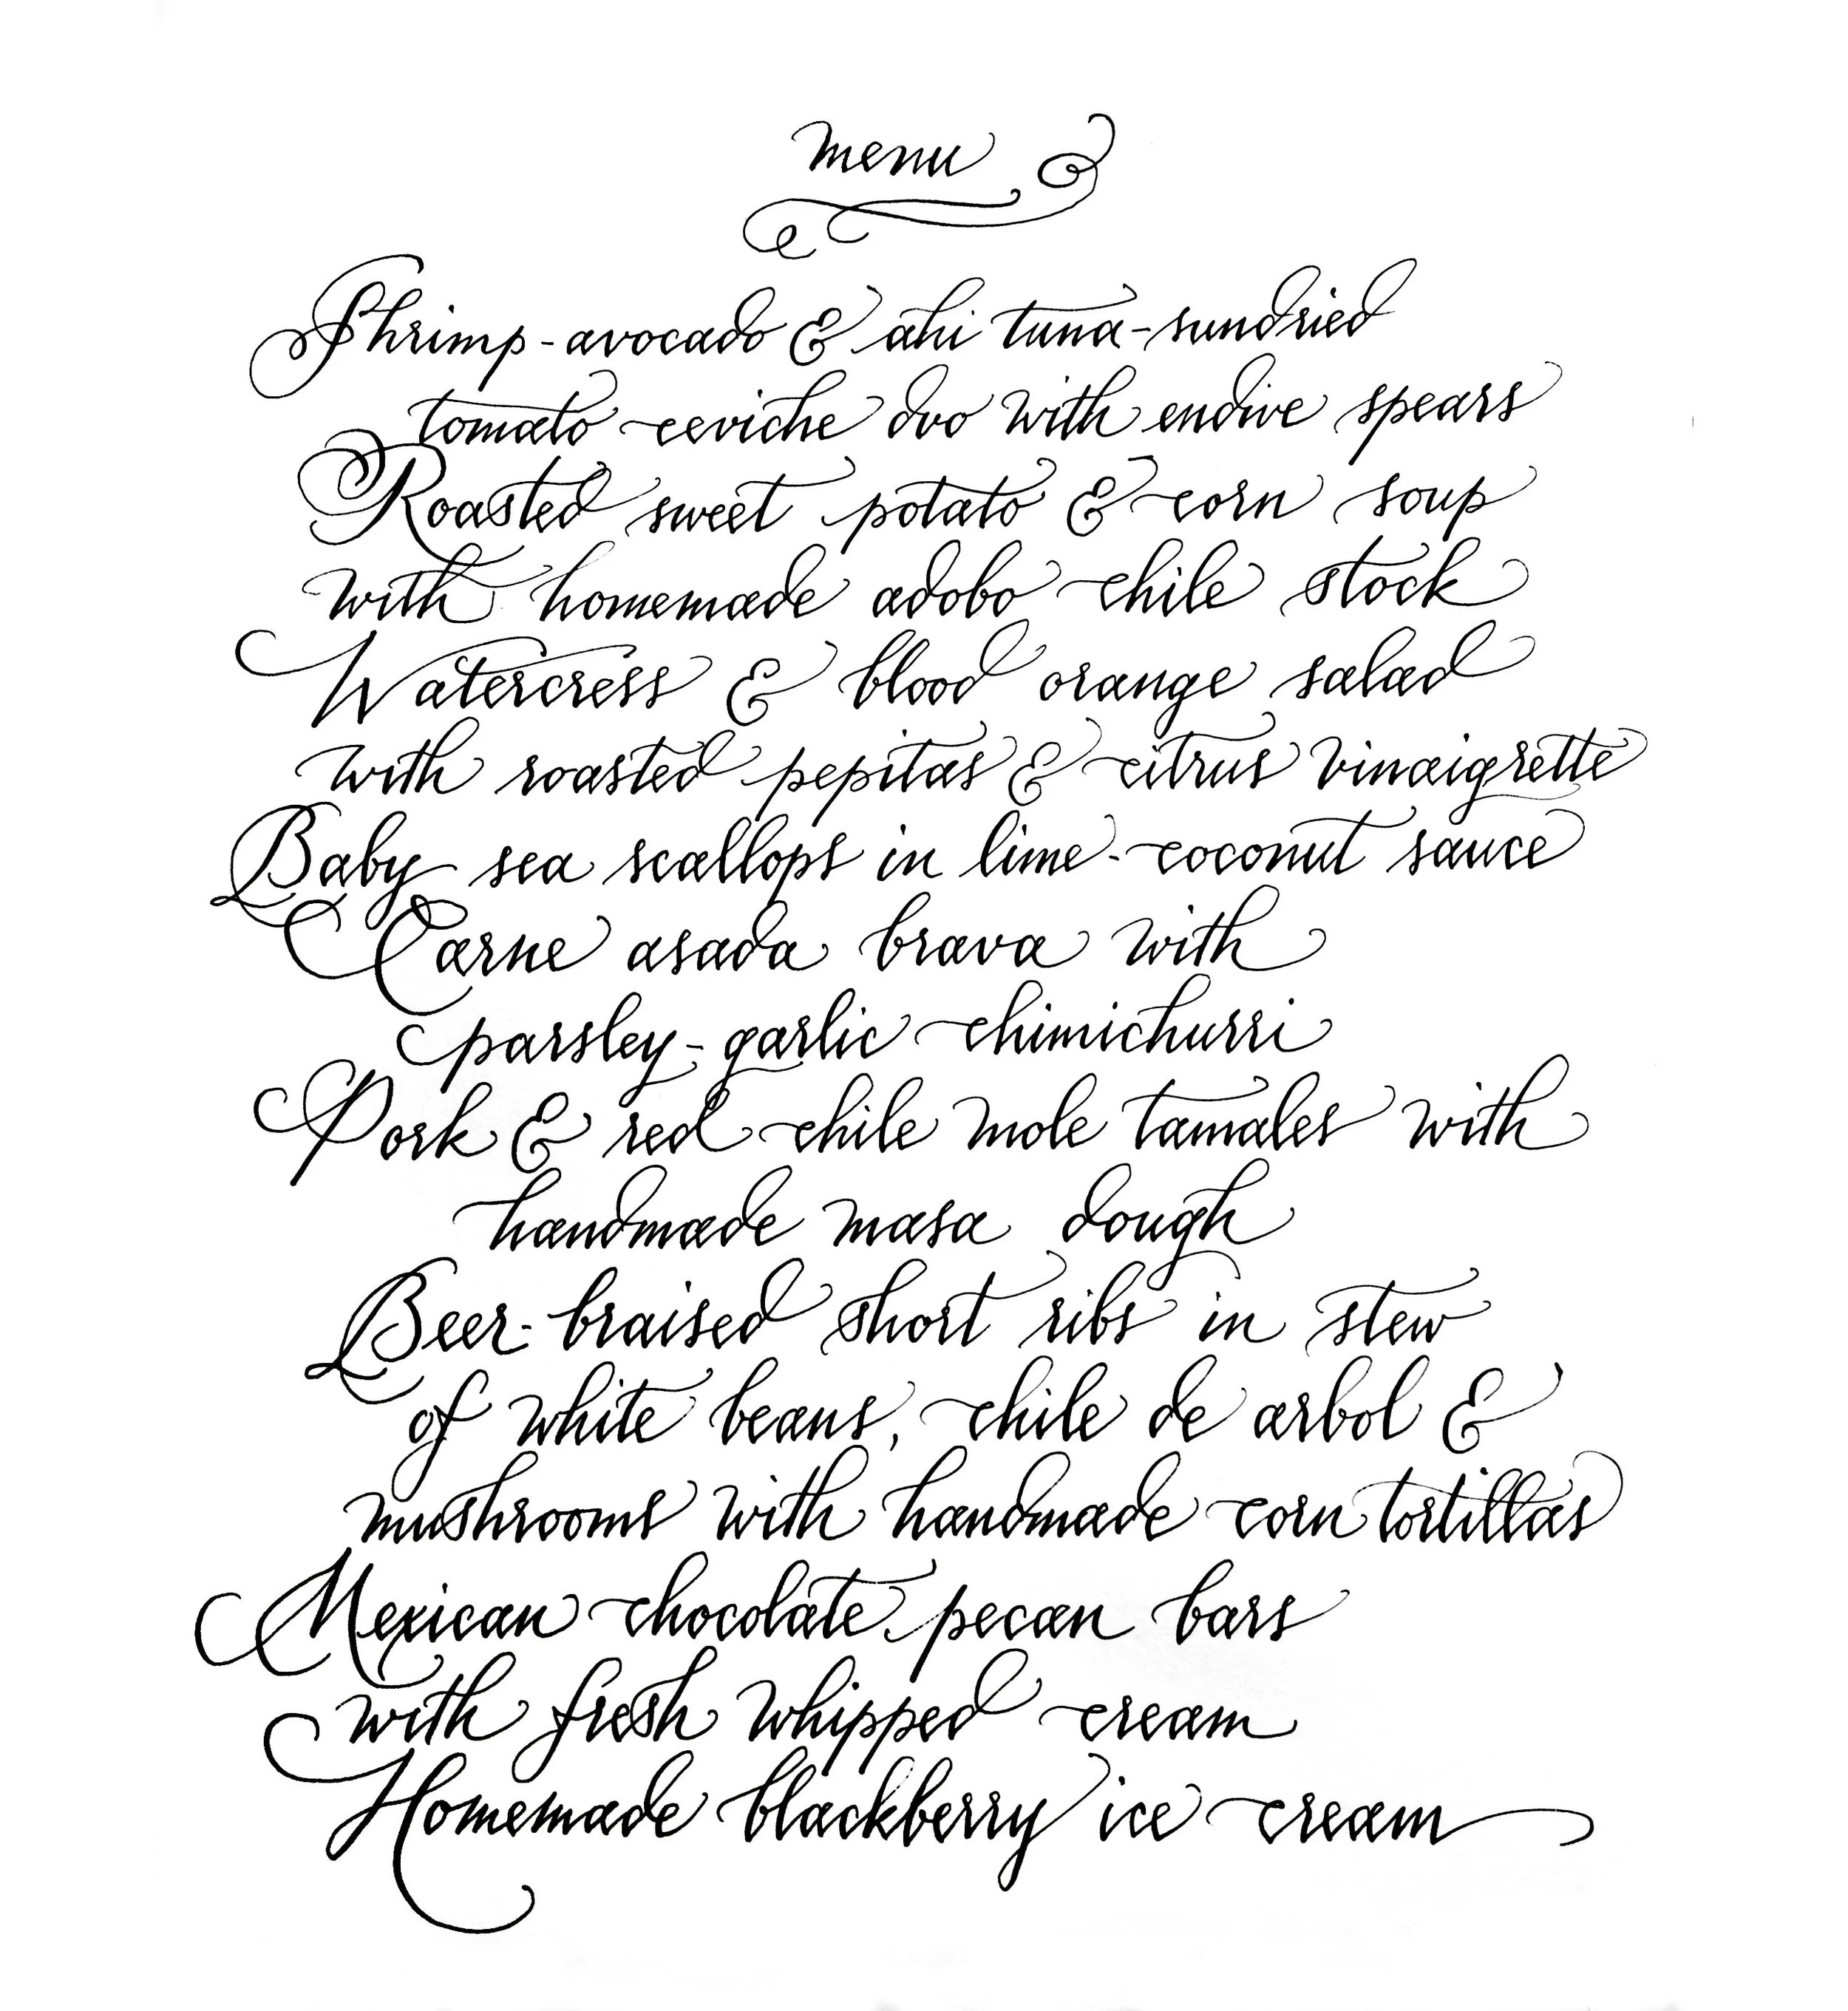 menu
Shrimp-avocado & ahi tuna-sundried
tomato ceviche dvo with endive spears
Roasted sweet potato & corn soup
with homemade adobo chile stock
Watercress & blood orange salad
with roasted pepitas & citrus vinaigrette
Baby sea scallops in lime-coconut sauce
Carne asada brava with
parsley-garlic chimichurri
Pork & red chile mole tamales with
handmade masa dough
Beer-braised short ribs in stew
of white beans, chile de arbol &
mushrooms with handmade corn tortillas
Mexican chocolate pecan bars
with fresh whipped cream
Homemade blackberry ice cream